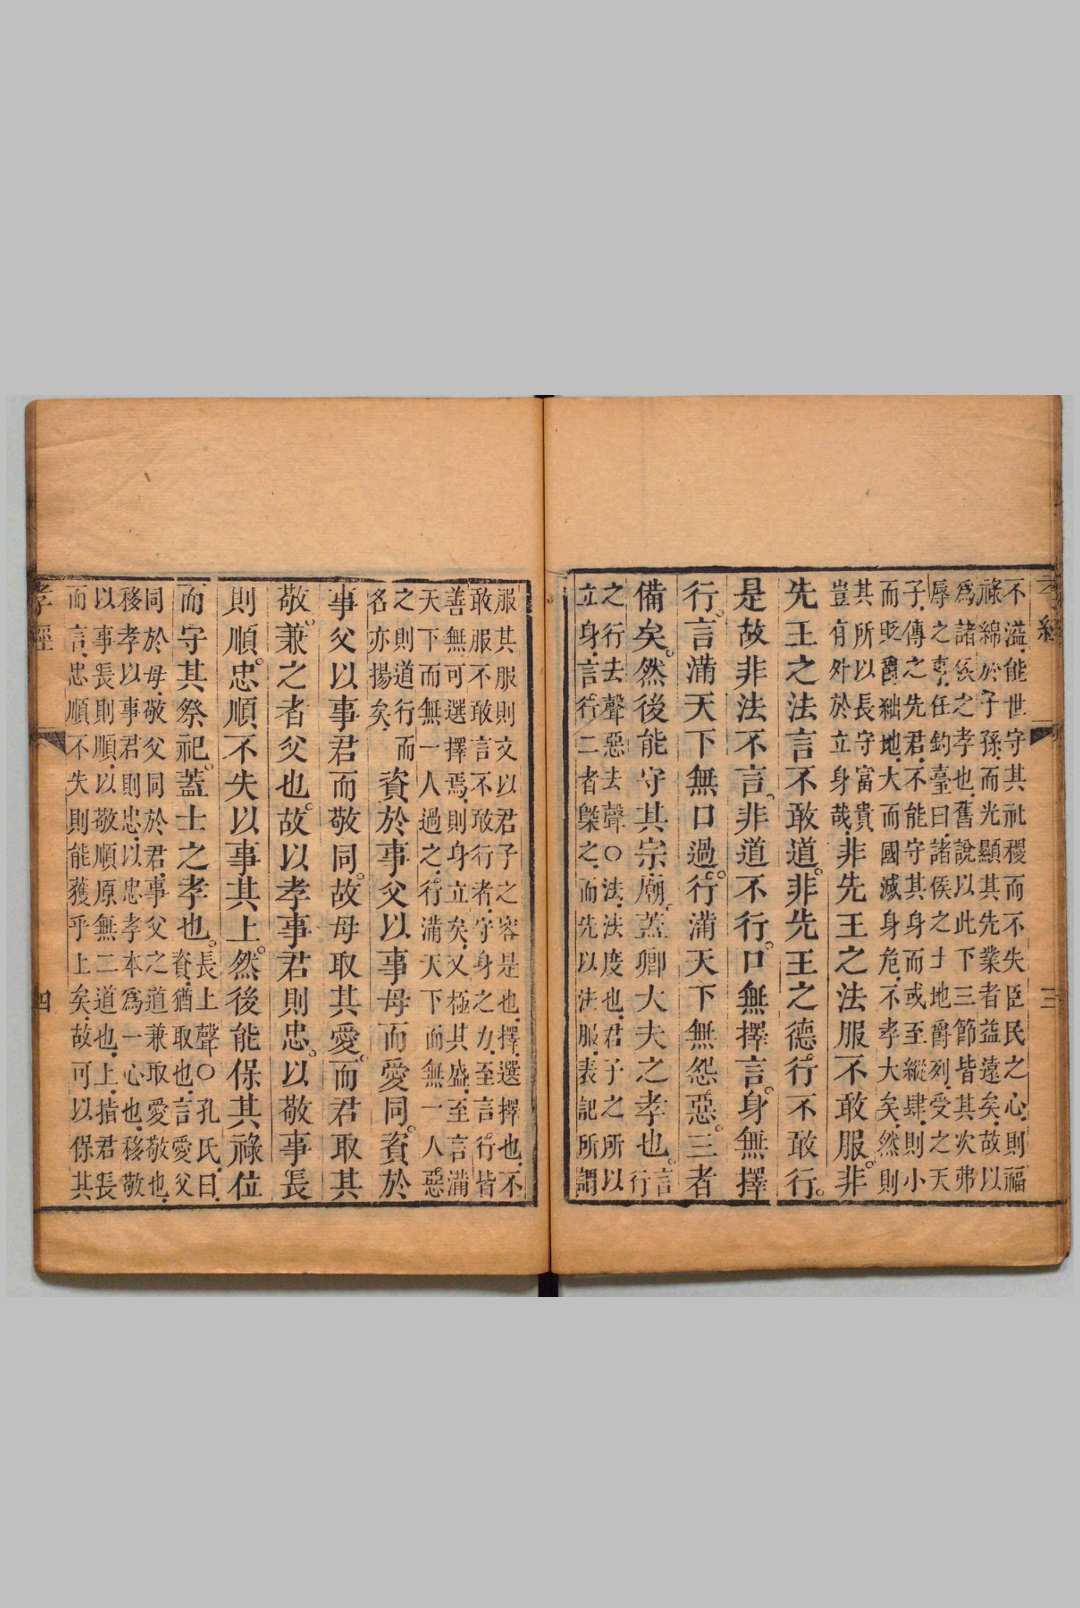 孝經
三
不溢能世守其社稷而不失臣民之心則福
祿綿於子孫而光顯其先業者益遠矣故以
爲諸侯之孝也舊說以此下三節皆其次弗
辱之事任鈞臺曰諸侯之士地爵列受之天
子傳之先君不能守其身而或至縱肆則小
而貶爵絀地大而國滅身危不孝大矣然則
其所以長守富貴
豈有外於立身哉
非先王之法服不敢服非
先王之法言不敢道非先王之德行不敢行
是故非法不言非道不行口無擇言身無擇
行言滿天下無口過行滿天下無怨惡三者
備矣然後能守其宗廟蓋卿大夫之孝也
言
行
之行去聲惡去聲○法法度也君子之所以
立身言行二者槩之而先以法服表記所謂
服其服則文以君子之容是也擇選擇也不
敢服不敢言不敢行者守身之力至言行皆
善無可選擇焉則身立矣又極其盛至言滿
天下而無一人過之行滿天下而無一人惡
之則道行而
名亦揚矣
資於事父以事母而愛同資於
事父以事君而敬同故母取其愛而君取其
敬兼之者父也故以孝事君則忠以敬事長
則順忠順不失以事其上然後能保其祿位
而守其祭祀蓋士之孝也
長上聲○孔氏曰
資猶取也言愛父
同於母敬父同於君事父之道兼取愛敬也
移孝以事君則忠以忠孝本爲一心也移敬
以事長則順以敬順原無二道也上指君長
而言忠順不失則能獲乎上矣故可以保其
孝經
四